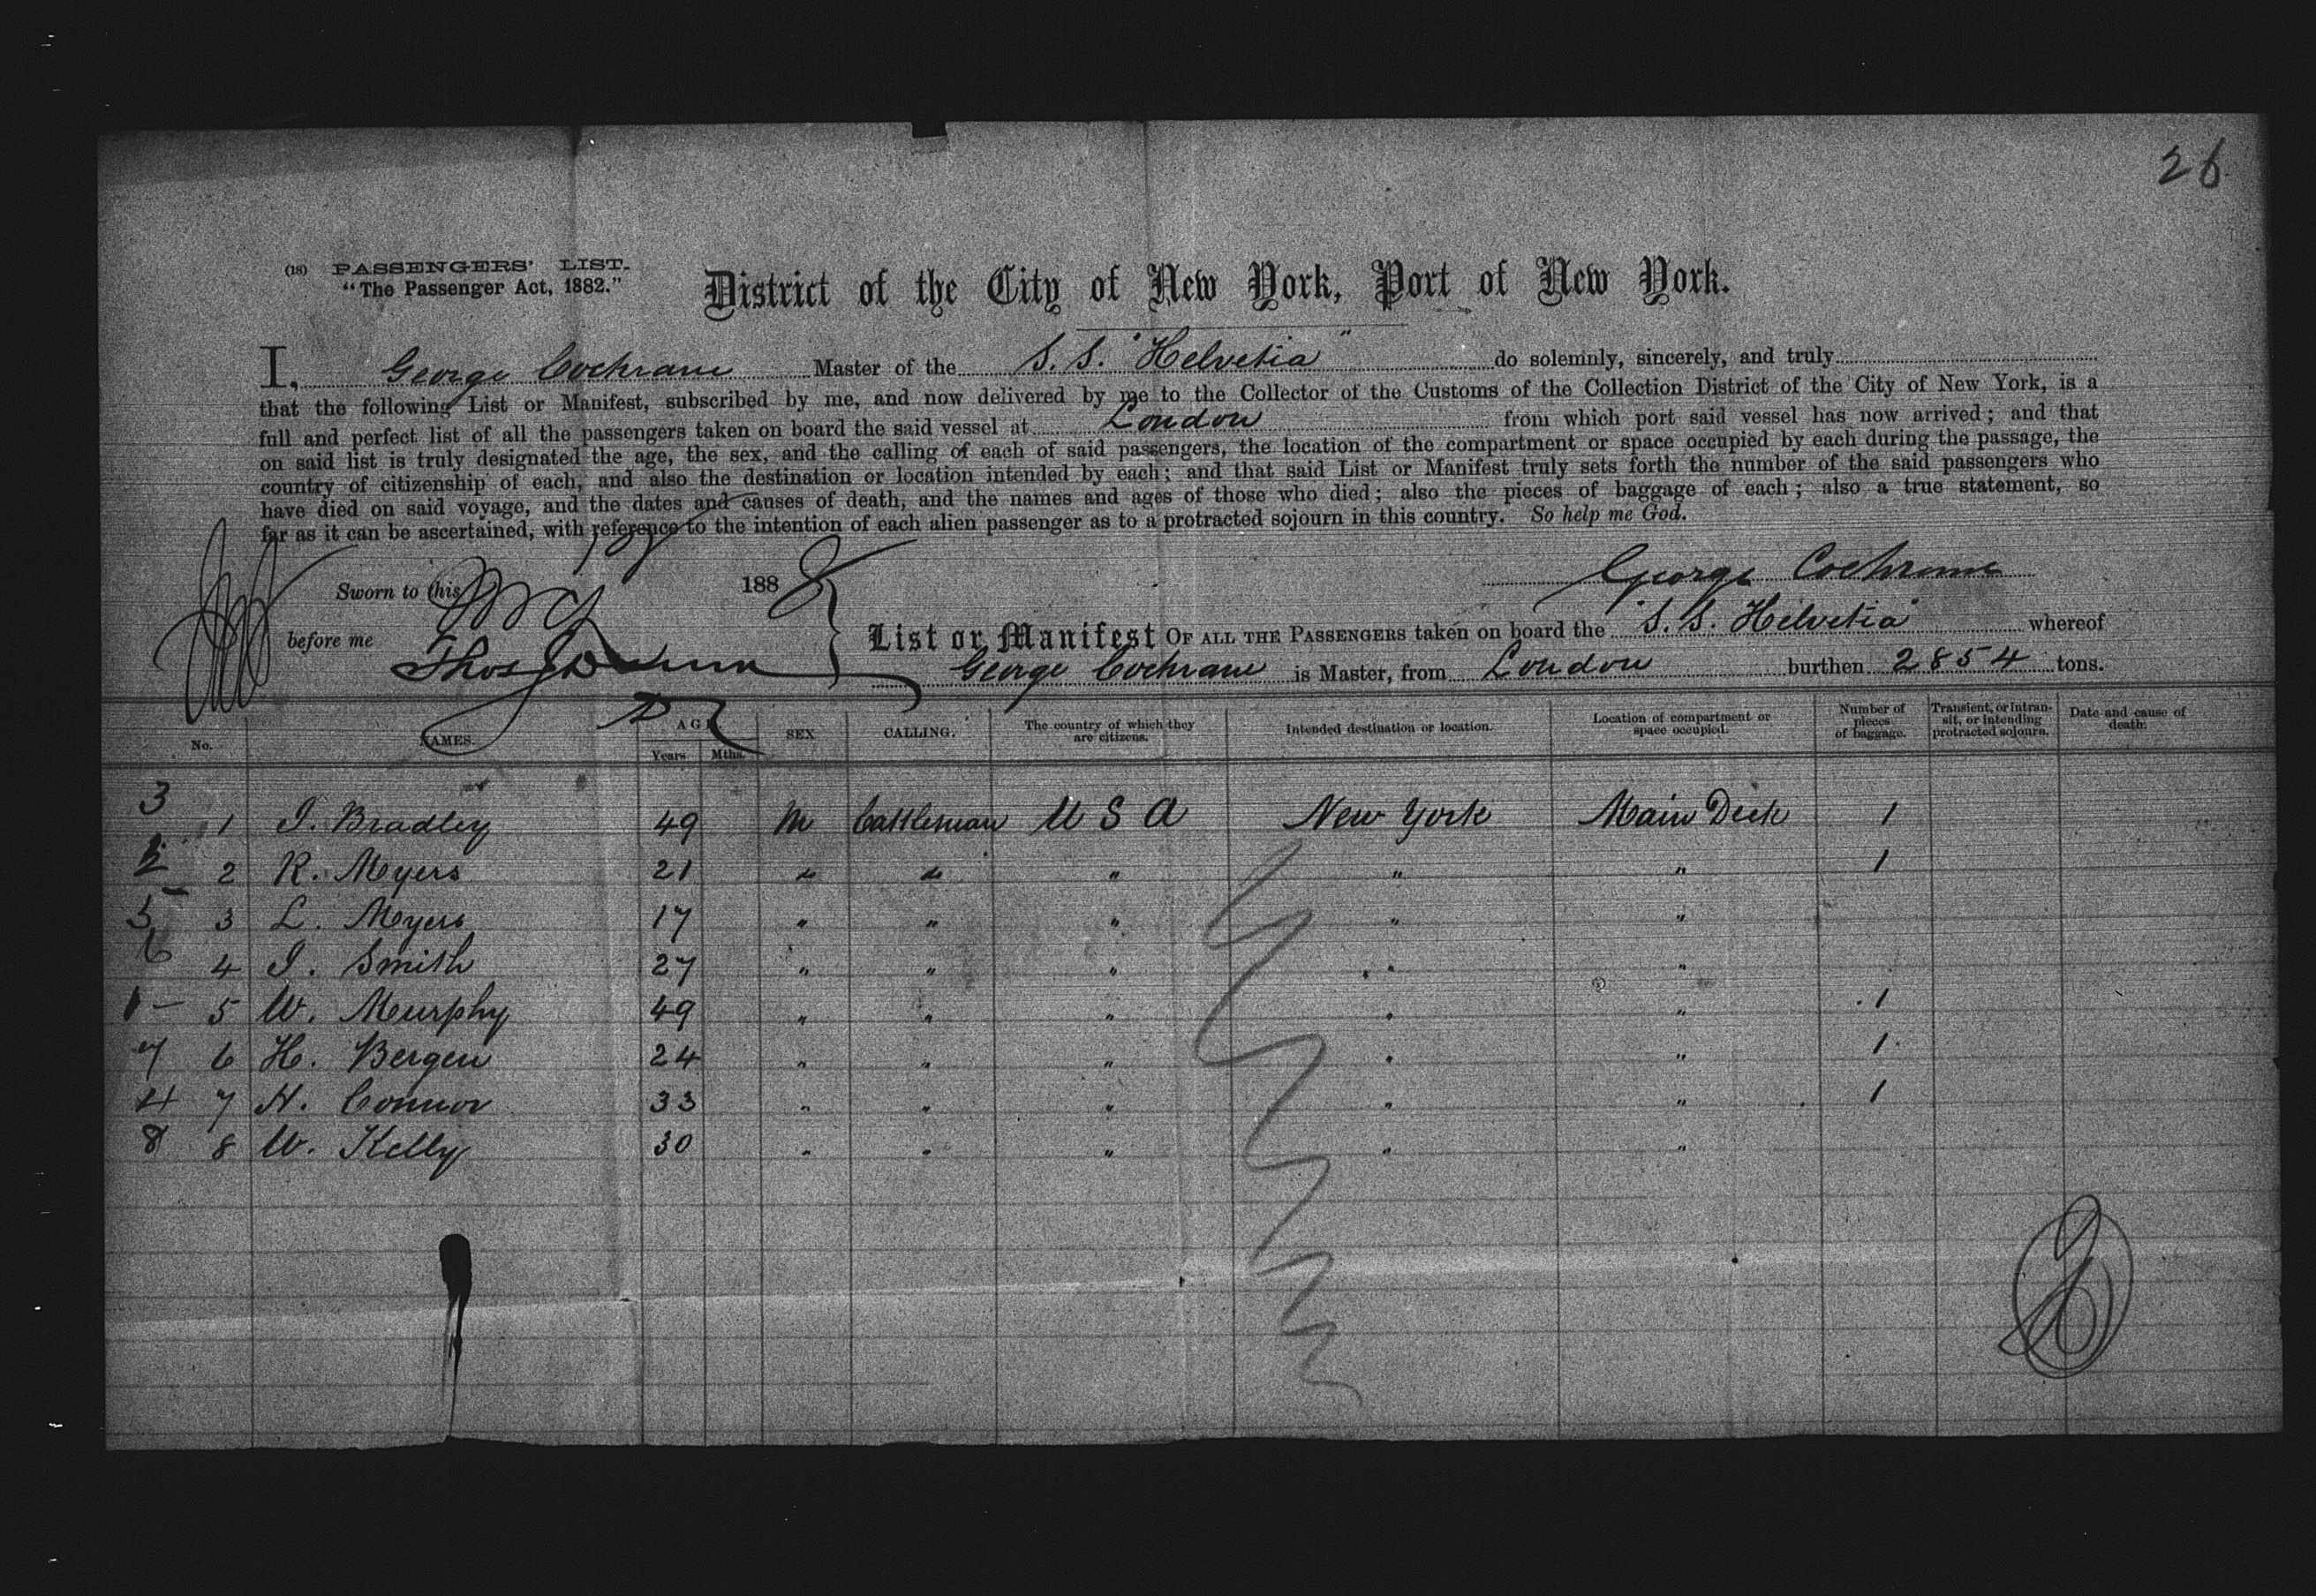 26
(18) PASSENGERS' LIST.
"The Passenger Act, 1882."
District of the City of New York, Port of New York.
I, George Cochrane Master of the S. S. "Helvetia" do solemnly, sincerely, and truly
that the following List or Manifest, subscribed by me, and now delivered by me to the Collector of the Customs of the Collection District of the City of New York, is a
full and perfect list of all the passengers taken on board the said vessel at London from which port said vessel has now arrived; and that
on said list is truly designated the age, the sex, and the calling of each of said passengers, the location of the compartment or space occupied by each during the passage, the
country of citizenship of each, and also the destination or location intended by each; and that said List or Manifest truly sets forth the number of the said passengers who
have died on said voyage, and the dates and causes of death, and the names and ages of those who died; also the pieces of baggage of each; also a true statement, so
far as it can be ascertained, with reference to the intention of each alien passenger as to a protracted sojourn in this country. So help me God.
Sworn to this 1888 George Cochrane
before me
List or Manifest OF ALL THE PASSENGERS taken on board the S. S. Helvetia whereof
George Cochrane is Master, from London burthen 2854 tons.
No. NAMES. AGE Years Mths. SEX CALLING. The country of which they are citizens. Intended destination or location. Location of compartment or space occupied. Number of pieces of baggage. Transient, or intransit, or intending protracted sojourn. Date and cause of death.
3 1 J. Bradley 49 M Cattleman U S A New York Main Deck 1
2 2 R. Meyers 21 " " " " " 1
5 3 L. Meyers 17 " " " " "
6 4 J. Smith 27 " " " " "
1 - 5 W. Murphy 49 " " " " " 1
7 6 H. Bergen 24 " " " " " 1
4 7 H. Connor 33 " " " " " 1
8 8 W. Kelly 30 " " " " "